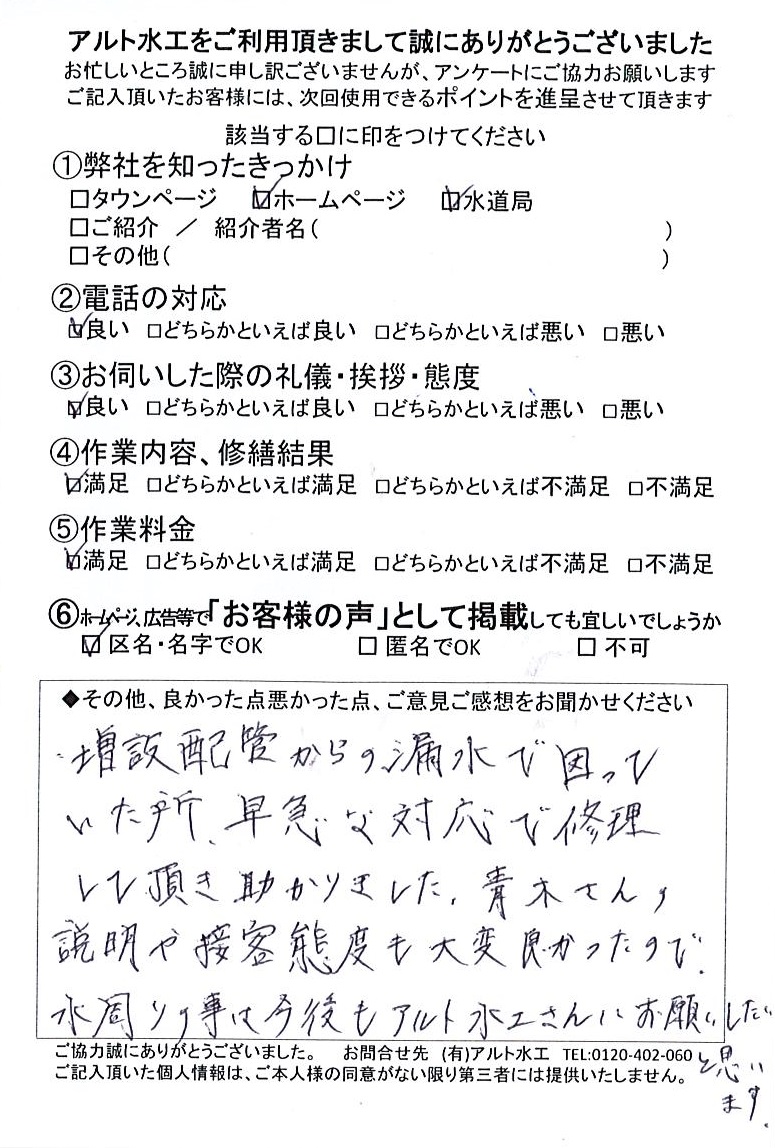 アルト水工をご利用頂きまして誠にありがとうございました
お忙しいところ誠に申し訳ございませんが、アンケートにご協力お願いします
ご記入頂いたお客様には、次回使用できるポイントを進呈させて頂きます
該当する□に印をつけてください
①弊社を知ったきっかけ
□タウンページ ☑ホームページ ☑水道局
□ご紹介 ／ 紹介者名( )
□その他( )
②電話の対応
☑良い □どちらかといえば良い □どちらかといえば悪い □悪い
③お伺いした際の礼儀・挨拶・態度
☑良い □どちらかといえば良い □どちらかといえば悪い □悪い
④作業内容、修繕結果
☑満足 □どちらかといえば満足 □どちらかといえば不満足 □不満足
⑤作業料金
☑満足 □どちらかといえば満足 □どちらかといえば不満足 □不満足
⑥ホームページ、広告等で「お客様の声」として掲載しても宜しいでしょうか
☑ 区名・名字でOK □ 匿名でOK □ 不可
◆その他、良かった点悪かった点、ご意見ご感想をお聞かせください
増設配管からの漏水で困って
いた所、早急な対応で修理
して頂き助かりました。青木さんの
説明や接客態度も大変良かったので、
水周りの事は今後もアルト水工さんにお願いしたい
と思い
ます。
ご協力誠にありがとうございました。 お問合せ先 (有)アルト水工 TEL:0120-402-060
ご記入頂いた個人情報は、ご本人様の同意がない限り第三者には提供いたしません。